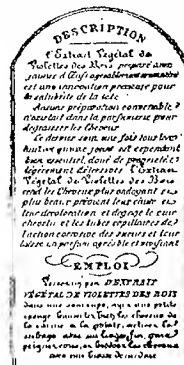 DESCRIPTION
L'Extrait Végétal de
Violettes des Bois préparé aux
jaunes d'Œufs agréablement aromatisé
est une innovation précieuse pour
la salubrité de la tête.
Aucune préparation convenable
n'existait dans la parfumerie pour
dégraisser les Cheveux
Ce dernier soin une fois tous les
huit ou quinze jours est cependant
bien essentiel, doué de propriétés
légèrement détersives l'Extrait
Végétal de Violettes des Bois
rend les Cheveux plus ondoyant et
plus beaux prévient leur chute et
leur décoloration et dégage le cuir
chevelu et les tubes capillaires de
l'action corrosive des sueurs et leur
laisse un parfum agréable et
EMPLOI
D'EXTRAIT
VÉGÉTAL DE VIOLETTES DES BOIS
dans une soucoupe, avec une petite
éponge les cheveux de
la racine à la pointe, activer le